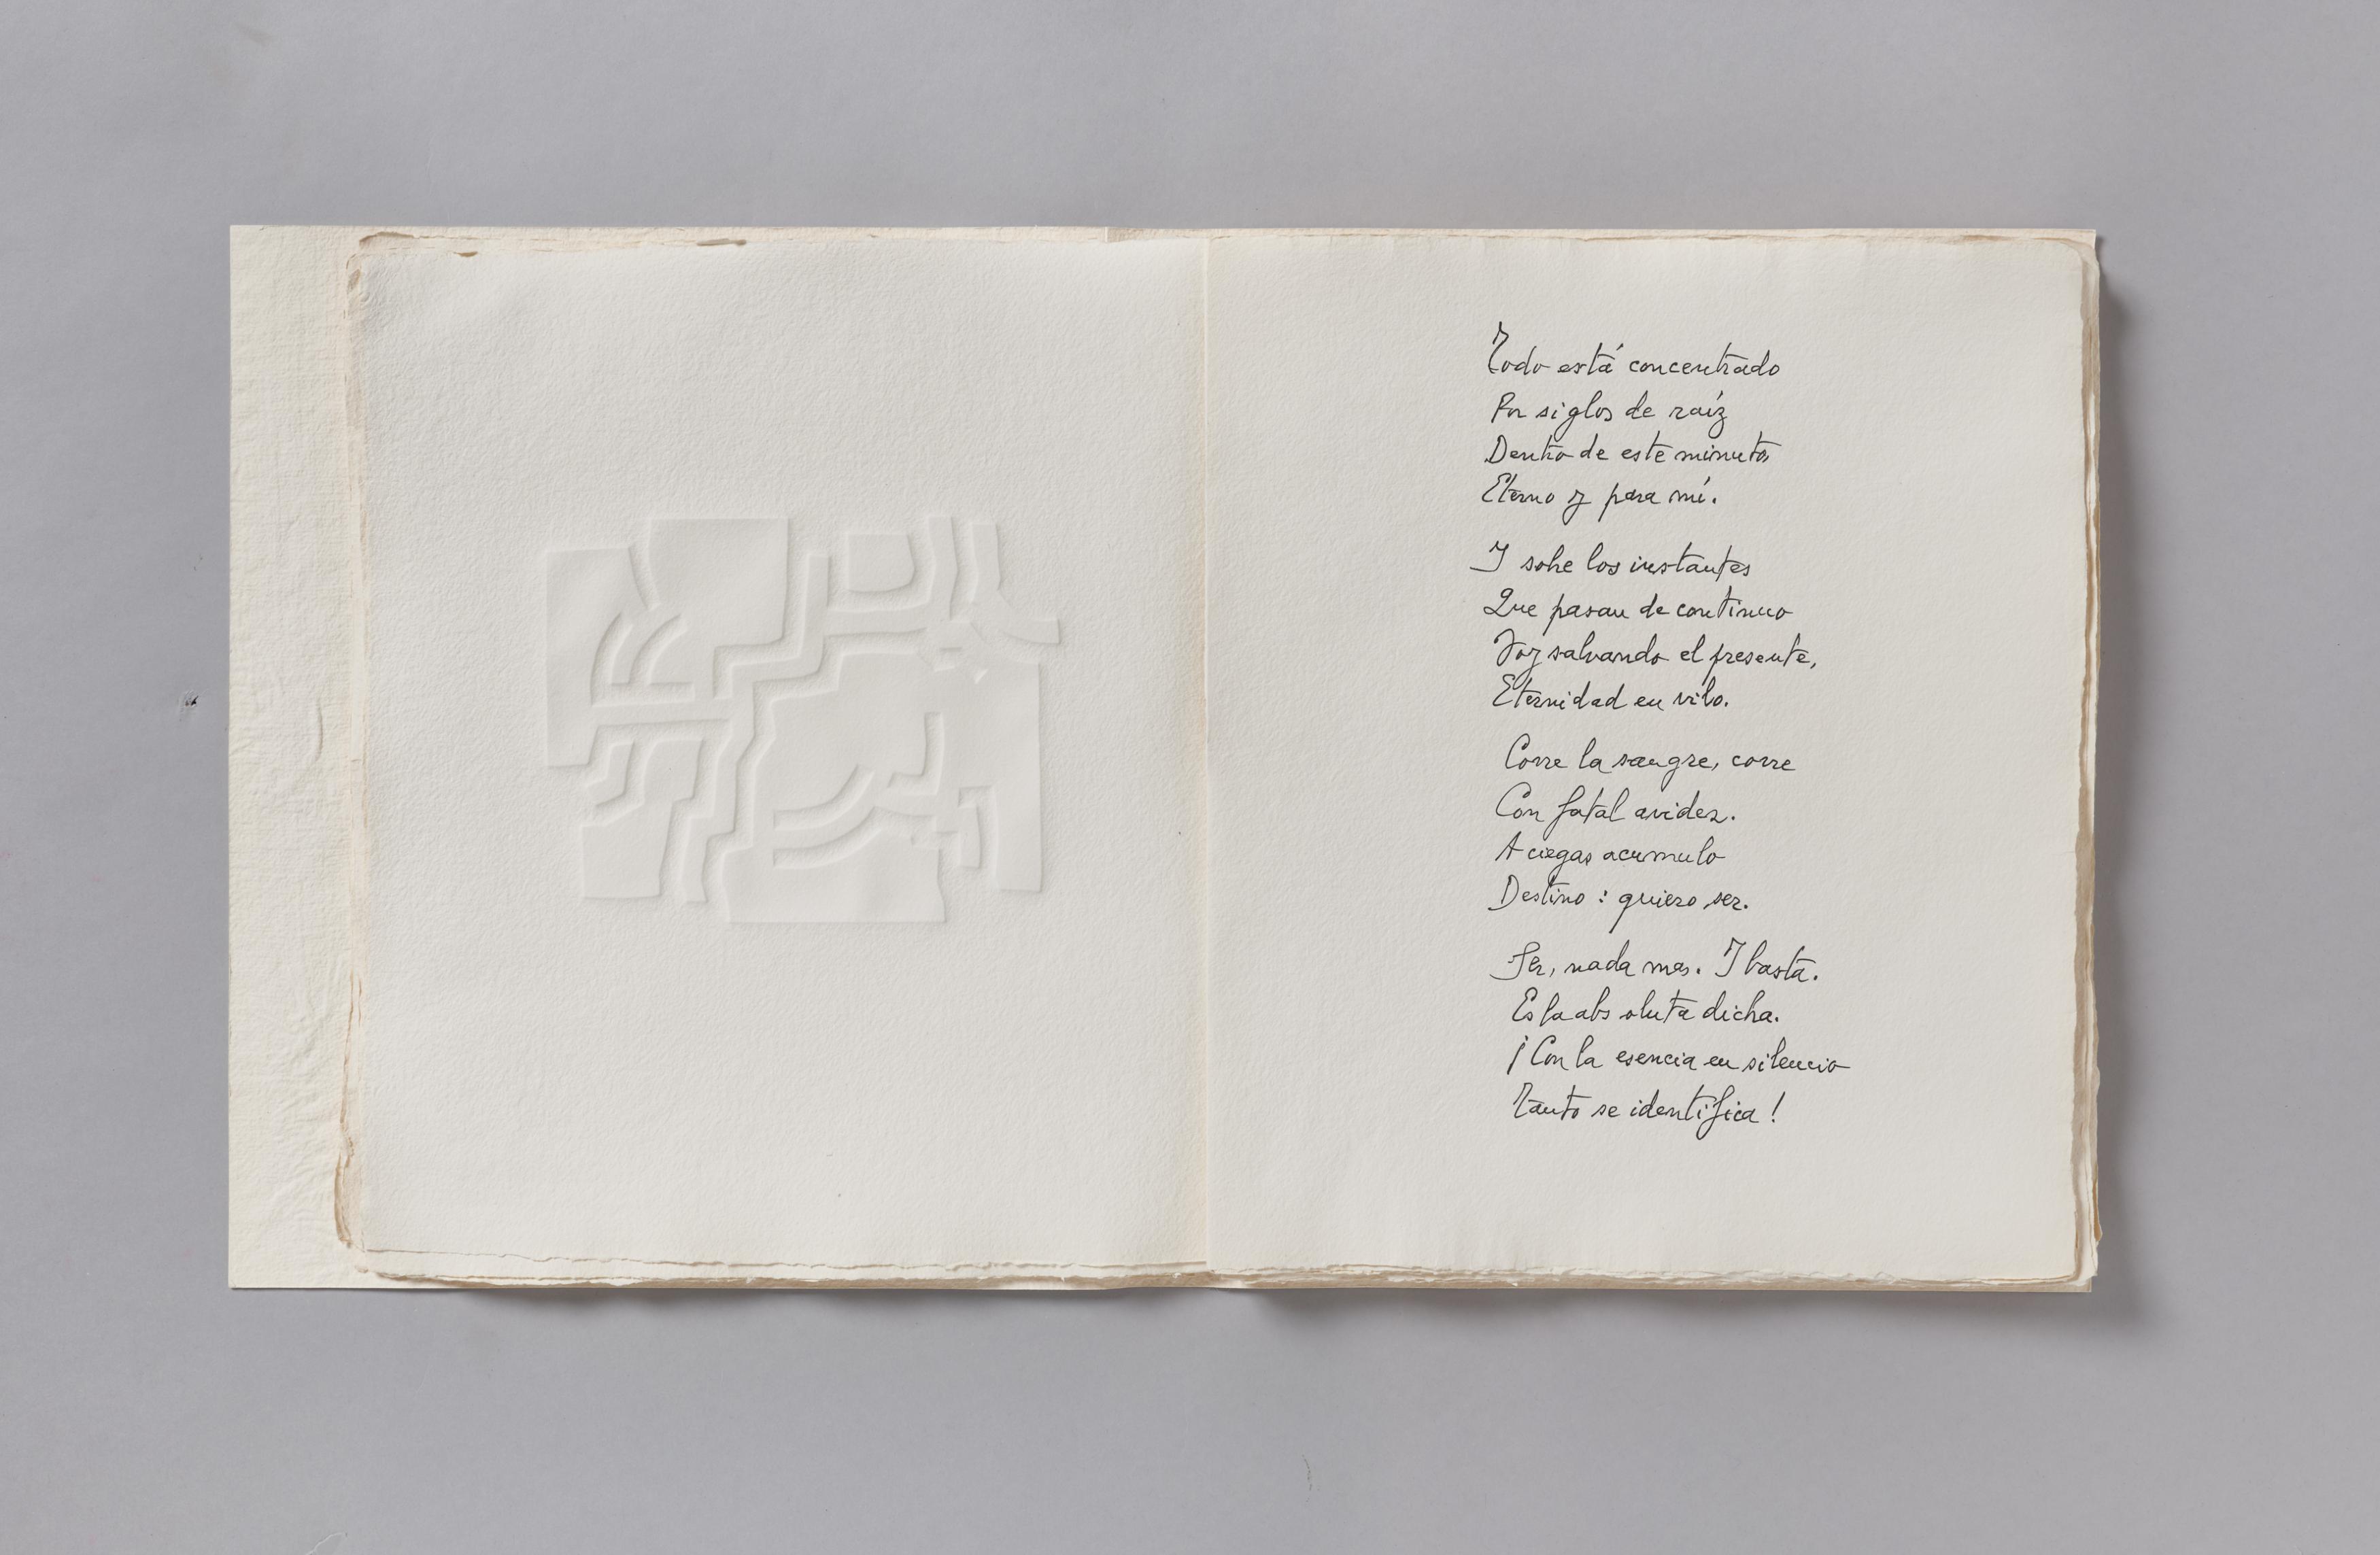 Todo está concentrado
Por siglos de raíz
Dentro de este minuto,
Eterno y para mí.
Y sobre los instantes
Que pasan de continuo
Voy salvando el presente,
Eternidad en vilo.
Corre la sangre, corre
Con fatal avidez.
A ciegas acumulo
Destino: quiero ser.
Ser, nada mas. Y basta.
Es la absoluta dicha.
¡Con la esencia en silencio
Tanto se identifica!